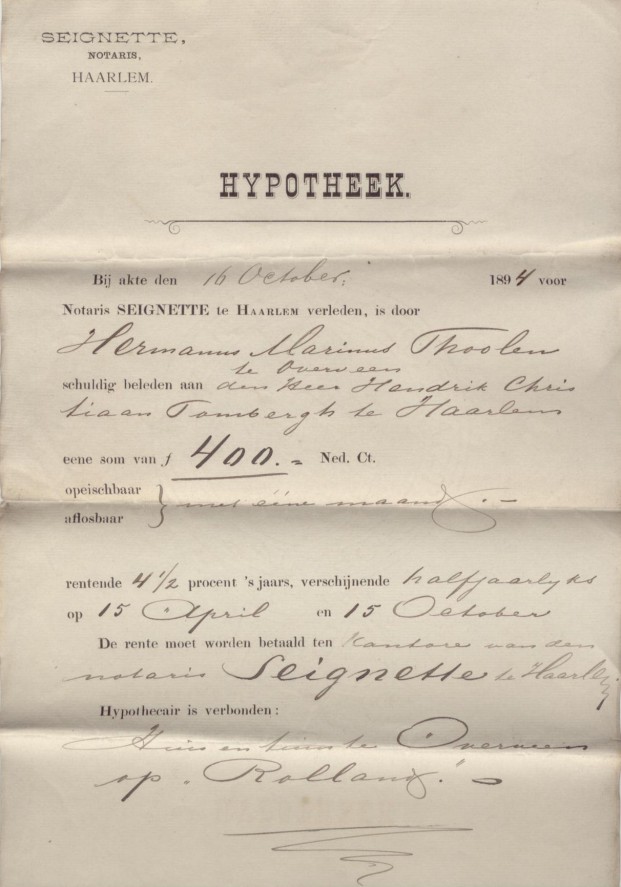 SEIGNETTE,
NOTARIS,
HAARLEM.
HYPOTHEEK.
Bij akte den 16 October, 1894 voor
Notaris SEIGNETTE te HAARLEM verleden, is door
Hermanus Marinus Thoolen
te Overveen
schuldig beleden aan den Heer Hendrik Chris
tiaan Tombergh te Haarlem
eene som van ƒ 400.- Ned. Ct.
opeischbaar
aflosbaar } met ééne maand. -
rentende 4 1/2 procent 's jaars, verschijnende halfjaarlyks
op 15 April en 15 October
De rente moet worden betaald ten Kantore van den
notaris Seignette te Haarlem
Hypothecair is verbonden:
Huis en tuin te Overveen
op "Rolland."